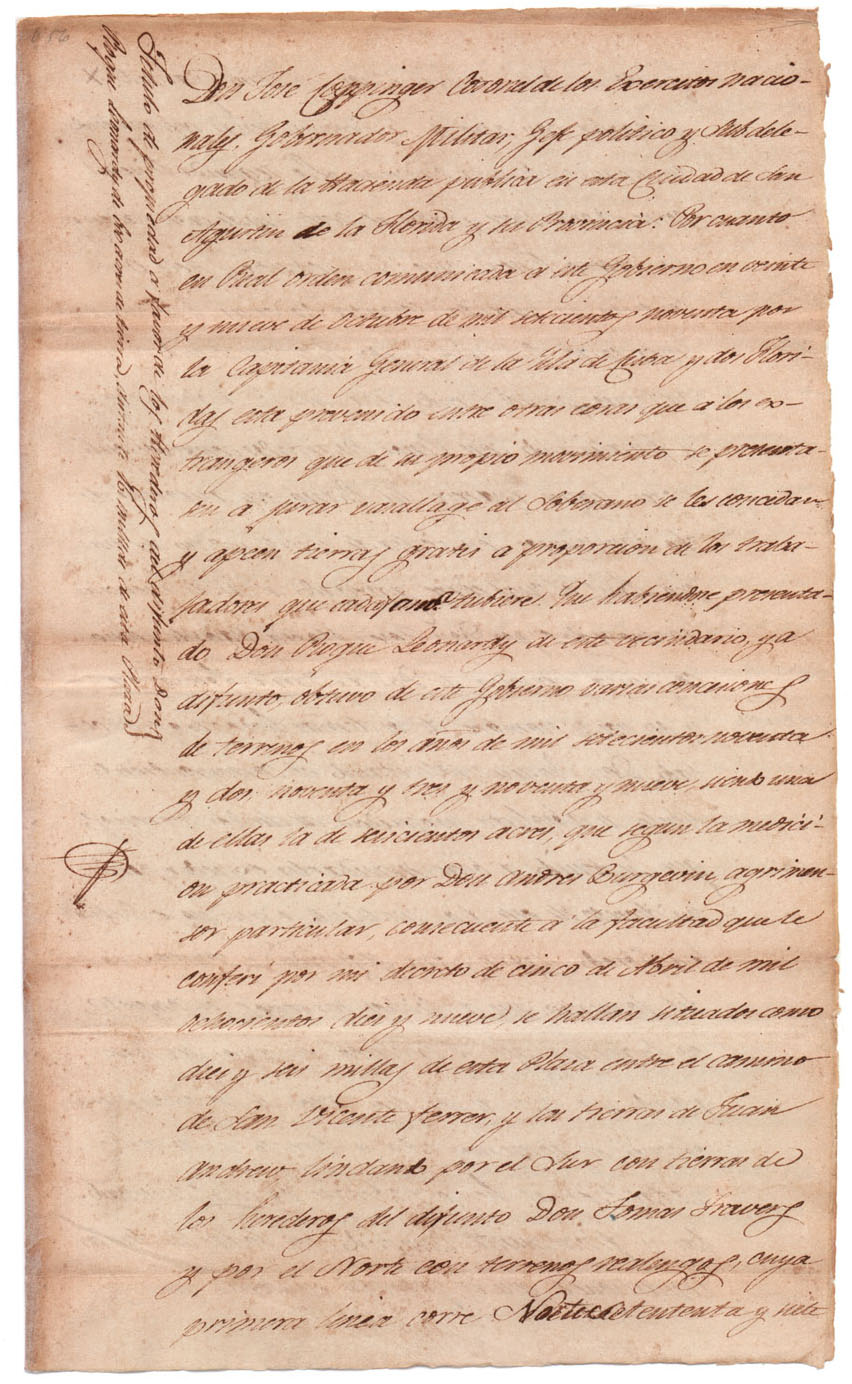 656
Titulo de propiedad a favor de los herederos del difunto Don
Roque Leonardy de 600 acres de tierra distante 16 millas de esta Plaza
Don José Coppinger Coronel de los Exercitos nacio-
nales, Gobernador Militar, Gefe politico y Subdele-
gado de la Hacienda publica en esta Ciudad de San
Agustin de la Florida y su Provincia: Por cuanto
en Real orden comunicada á este Gobierno en veinte
y nueve de Octubre de mil setecientos noventa por
la Capitanía General de la Ysla de Cuba y dos Flori-
das esta prevenido entre otras cosas que á los ex-
trangeros que de su propio movimiento se presenta-
sen a jurar vasallage al Soberano se les concedan
y apeen tierras gratis a proporcion de los traba-
jadores que cada fama. tubiere. Que habiendose presenta-
do Don Roque Leonardy de este vecindario, ya
difunto, obtuvo de este Gobierno varias conceciones
de terrenos en los años de mil setecientos noventa
y dos, noventa y tres y noventa y nueve, siendo una
de ellas la de seiscientos acres, que segun la medici-
on practicada por Don Andres Burgevin, agrimen-
sor particular, consecuente á la facultad que le
conferí por mi decreto de cinco de Abril de mil
ochocientos diez y nueve, se hallan situados como
diez y seis millas de esta Plaza entre el camino
de San Vicente Ferrer, y las tierras de Juan
Andrew, lindando por el Sur con tierras de
los herederos del difunto Don Tomas Travers
y por el Norte con terrenos realengos, cuya
primera linea corre Norte y siete